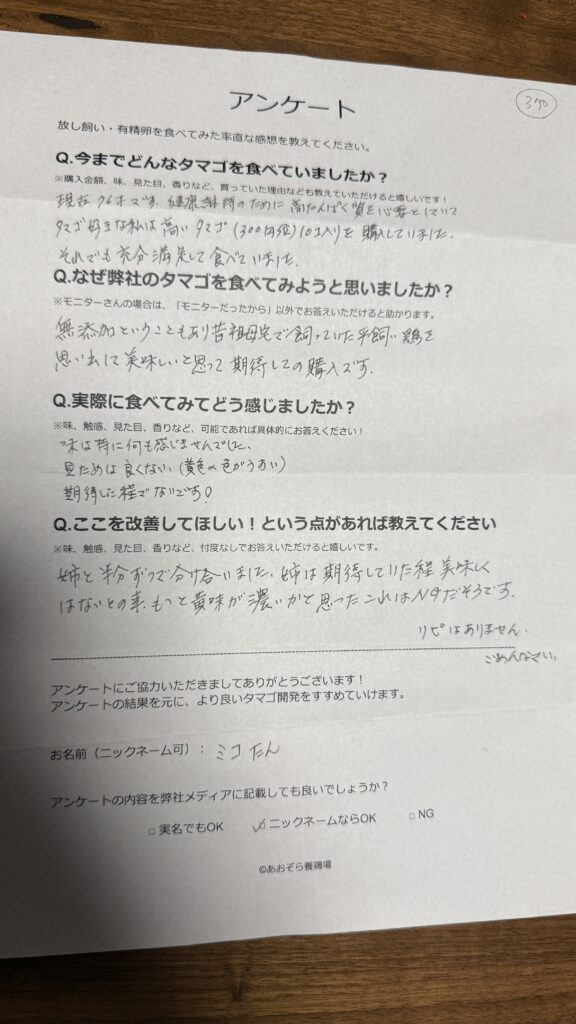 アンケート
370
放し飼い・有精卵を食べてみた率直な感想を教えてください。
Q.今までどんなタマゴを食べていましたか？
※購入金額、味、見た目、香りなど、買っていた理由なども教えていただけると嬉しいです！
現在76才です。健康維持のために高たんぱく質を必要としていて
タマゴ好きな私は高いタマゴ(300円位)10コ入りを購入していました。
それでも充分満足して食べていました。
Q.なぜ弊社のタマゴを食べてみようと思いましたか？
※モニターさんの場合は、「モニターだったから」以外でお答えいただけると助かります。
無添加ということもあり昔祖母宅で飼っていた平飼い鶏を
思い出して美味しいと思って期待しての購入です。
Q.実際に食べてみてどう感じましたか？
※味、触感、見た目、香りなど、可能であれば具体的にお答えください！
味は特に何も感じませんでした、
見ためは良くない、(黄色の色がうすい)
期待した程でないです！
Q.ここを改善してほしい！という点があれば教えてください
※味、触感、見た目、香りなど、忖度なしでお答えいただけると嬉しいです。
姉と半分ずつで分け合いました、姉は期待していた程美味しく
はないとの事、もっと黄味が濃いかと思ったこれはNGだそうです。
リピはありません。
ごめんなさい。
アンケートにご協力いただきましてありがとうございます！
アンケートの結果を元に、より良いタマゴ開発をすすめていけます。
お名前（ニックネーム可）：ミコたん
アンケートの内容を弊社メディアに記載しても良いでしょうか？
□ 実名でもOK ☑ ニックネームならOK □ NG
©あおぞら養鶏場